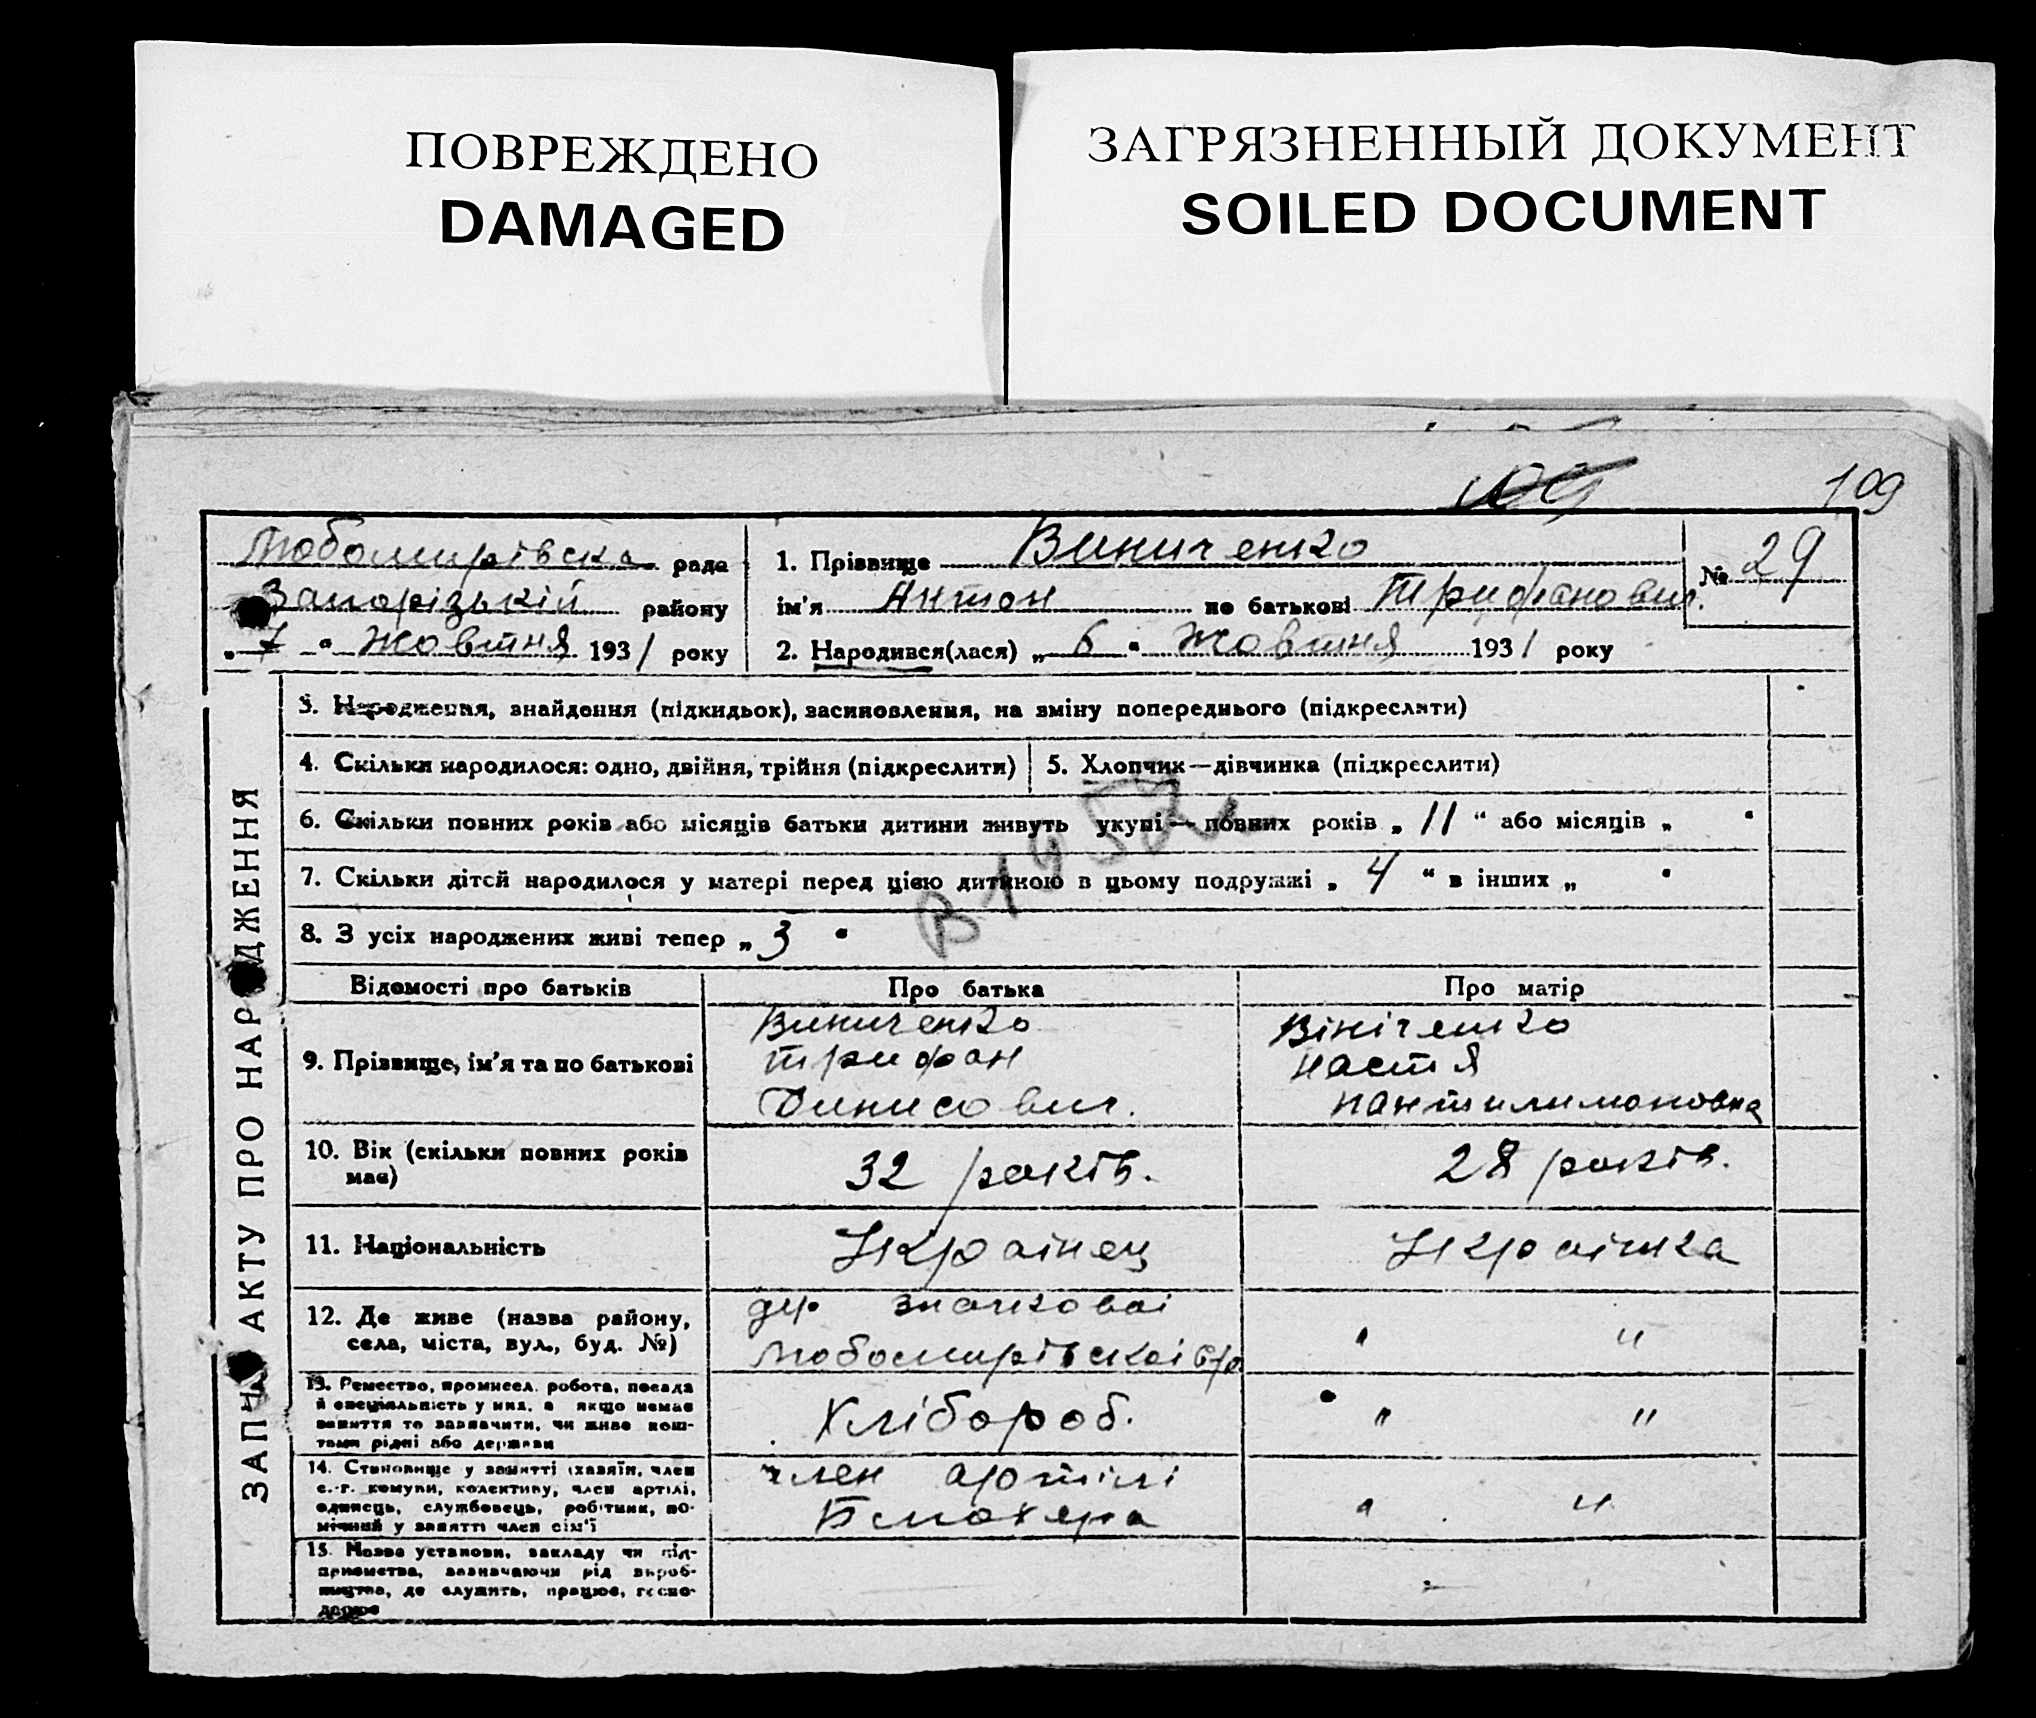 ПОВРЕЖДЕНО
DAMAGED
ЗАГРЯЗНЕННЫЙ ДОКУМЕНТ
SOILED DOCUMENT
109
109
Любомирівска рада
Запорізькій району
„ 7 " жовтня 1931 року
1. Прізвище Виниченко
ім'я Антон по батькові Трифанович.
№ 29
2. Народився(лася) „ 6 " жовтня 1931 року
ЗАПИС АКТУ ПРО НАРОДЖЕННЯ
3. Народження, знайдення (підкидьок), засиновлення, на зміну попереднього (підкреслити)
4. Скільки народилося: одно, двійня, трійня (підкреслити)
5. Хлопчик—дівчинка (підкреслити)
6. Скільки повних років або місяців батьки дитини живуть укупі — повних років „ 11 " або місяців „ "
7. Скільки дітей народилося у матері перед цією дитиною в цьому подружжі „ 4 " в інших „ "
8. З усіх народжених живі тепер „ 3 "
Відомості про батьків
Про батька
Про матір
9. Прізвище, ім'я та по батькові
Виниченко
Трифан
Динисович.
Вініченко
Настя
Пантилимоновна
10. Вік (скільки повних років має)
32 років.
28 років.
11. Національність
Українец
Українка
12. Де живе (назва району,
села, міста, вул., буд. №)
Любомирівскоі с/р
" "
13. Ремество, промисел, робота, посада
й спеціяльність у них, а якщо немає
заняття то зазначити, чи живе кош-
тами рідні або держави
Хлібороб.
" "
14. Становище у занятті (хазяїн, член
с.-г. комуни, колективу, член артілі,
одинець, службовець, робітник, по-
мічний у занятті член сім'ї
член артілі
" "
15. Назва установи, закладу чи під-
приємства, зазначаючи рід вироб-
ництва, де служить, працює, госпо-
дарює